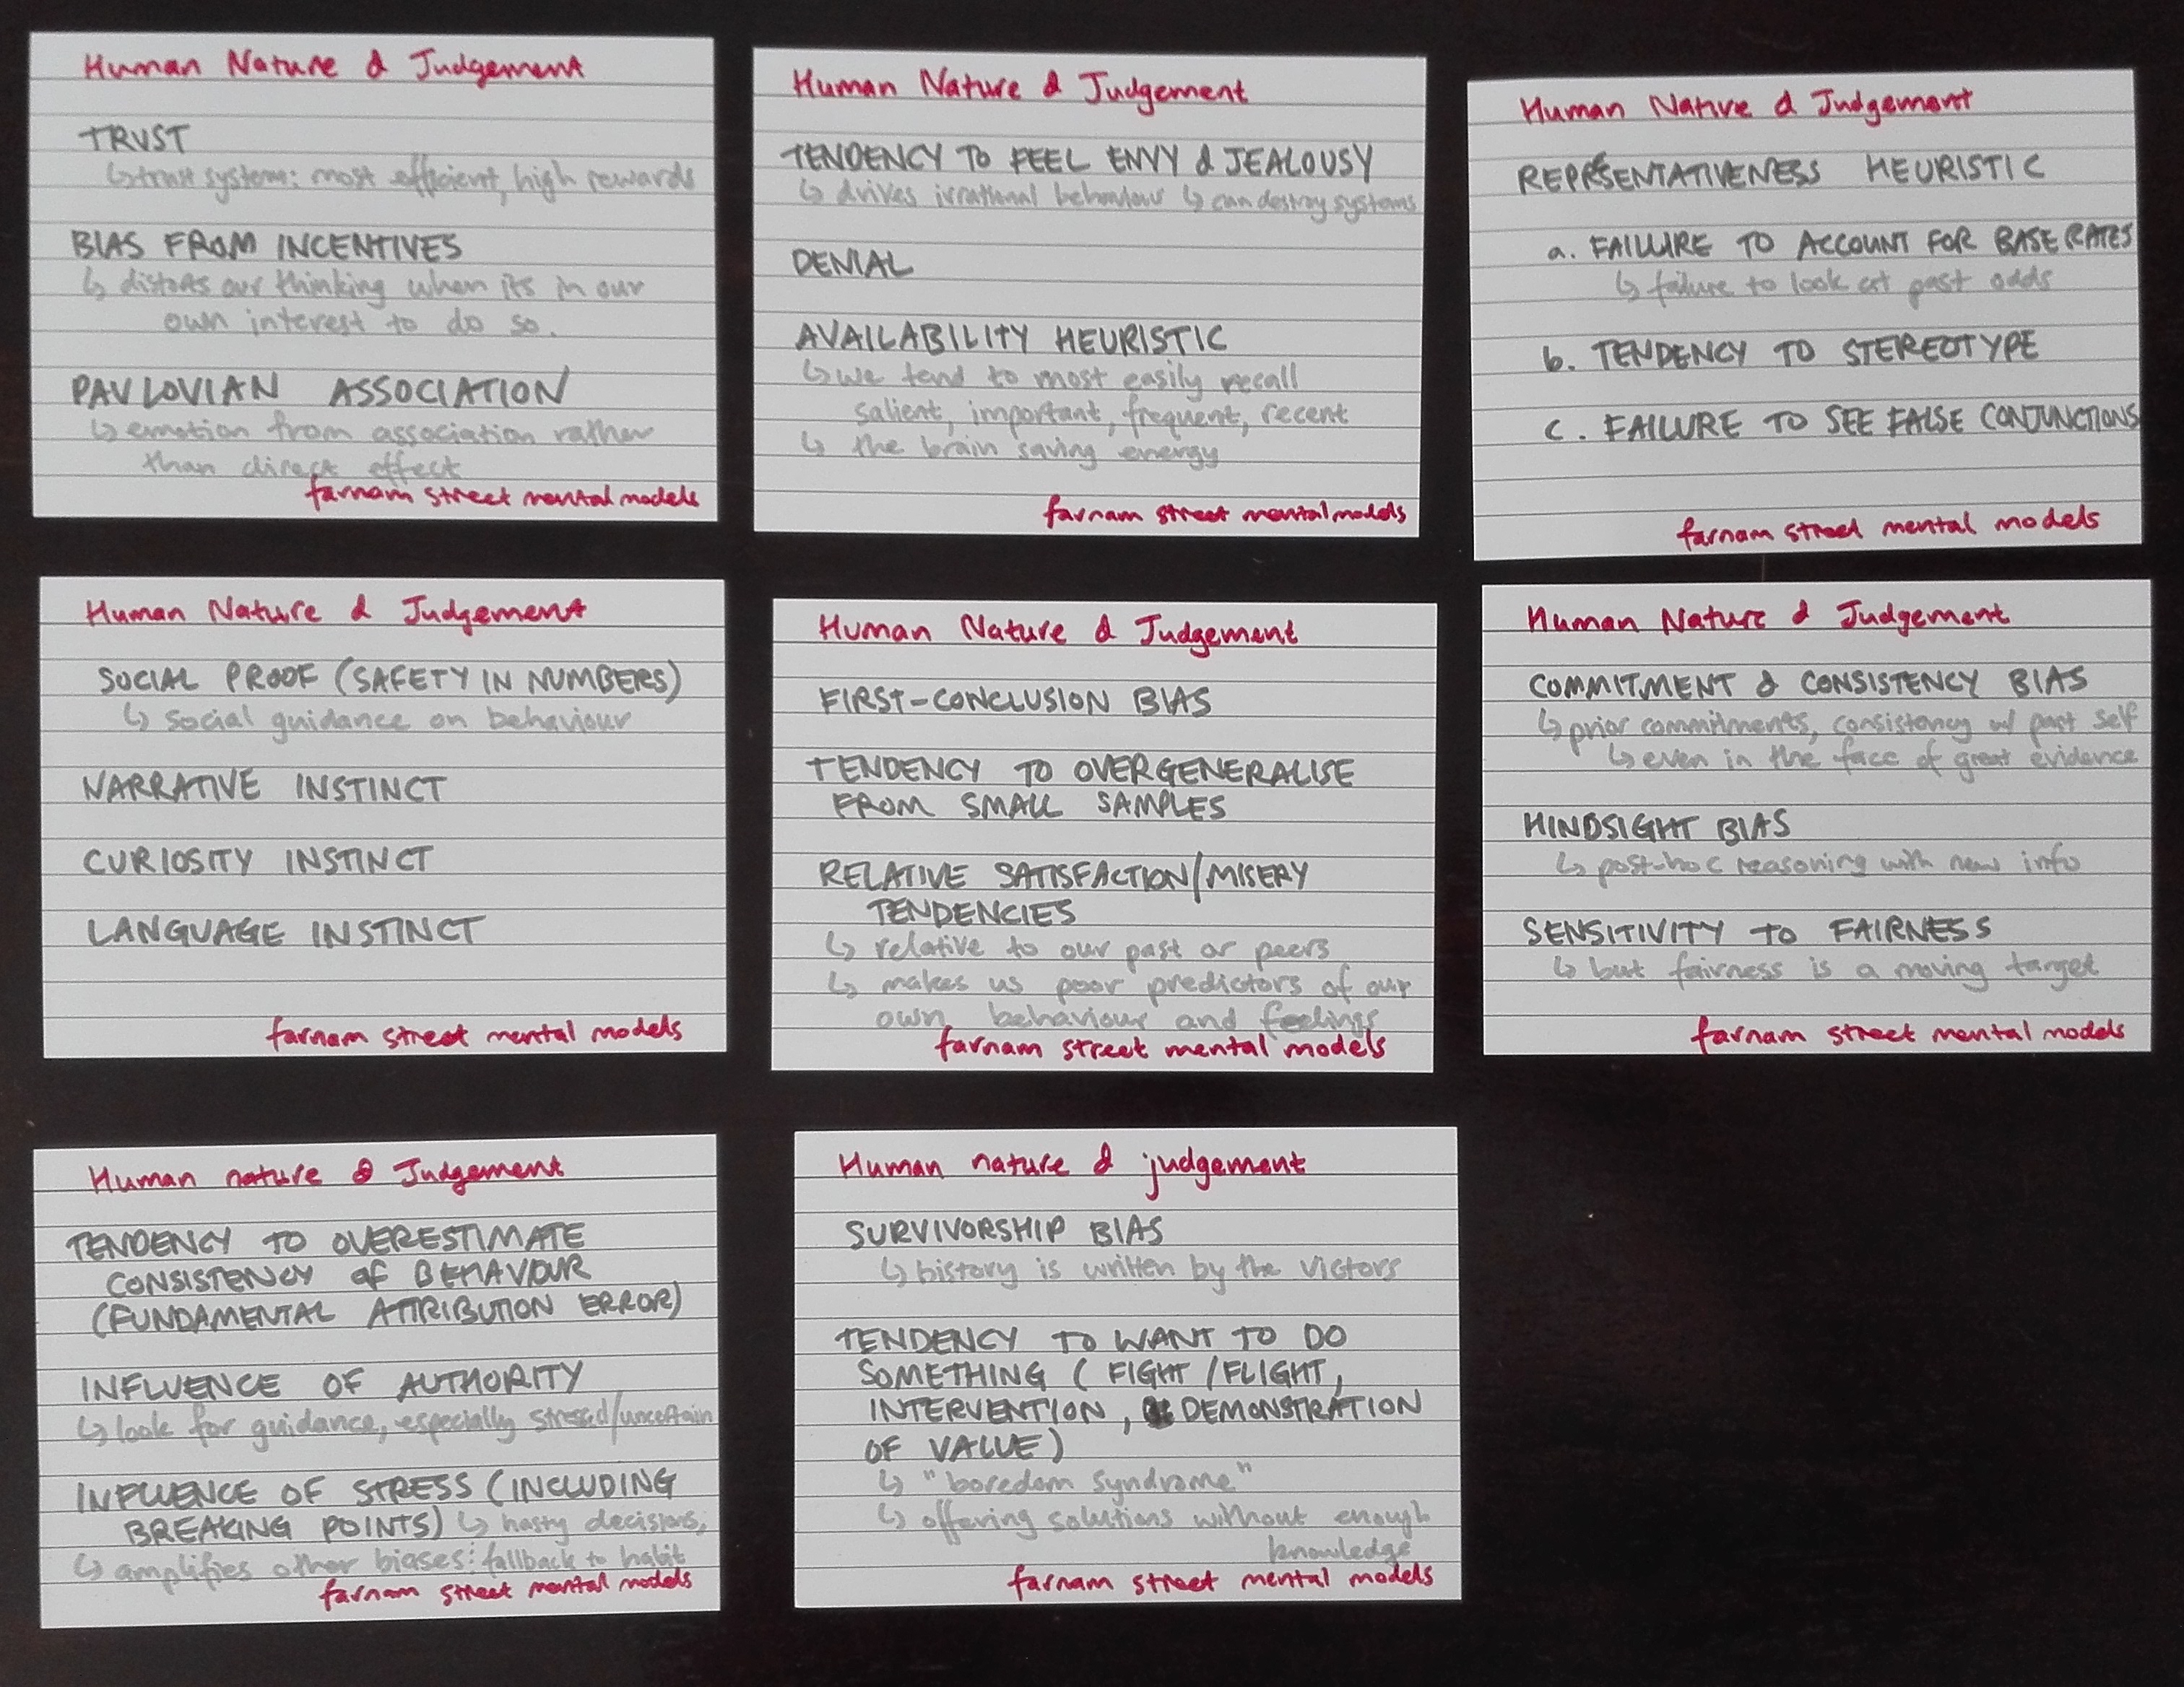 Human Nature & Judgement
TRUST
↳ trust systems: most efficient, high rewards
BIAS FROM INCENTIVES
↳ distorts our thinking when its in our
own interest to do so.
PAVLOVIAN ASSOCIATION
↳ emotion from association rather
than direct effect
farnam street mental models
Human Nature & Judgement
TENDENCY TO FEEL ENVY & JEALOUSY
↳ drives irrational behaviour ↳ can destroy systems
DENIAL
AVAILABILITY HEURISTIC
↳ we tend to most easily recall
salient, important, frequent, recent
↳ the brain saving energy
farnam street mental models
Human Native & Judgement
REPRSENTATIVENESS HEURISTIC
a. FAILURE TO ACCOUNT FOR BASE RATES
↳ failure to look at past odds
b. TENDENCY TO STEREOTYPE
c. FAILURE TO SEE FALSE CONJUNCTIONS
farnam street mental models
Human Nature & Judgement
SOCIAL PROOF (SAFETY IN NUMBERS)
↳ social guidance on behaviour
NARRATIVE INSTINCT
CURIOSITY INSTINCT
LANGUAGE INSTINCT
farnam street mental models
Human Nature & Judgement
FIRST-CONCLUSION BIAS
TENDENCY TO OVERGENERALISE
FROM SMALL SAMPLES
RELATIVE SATISFACTION/MISERY
TENDENCIES
↳ relative to our past or peers
↳ makes us poor predictors of our
own behaviour and feelings
farnam street mental models
Human Nature & Judgement
COMMITMENT & CONSISTENCY BIAS
↳ prior commitments, consistency w/ past self
↳ even in the face of great evidence
HINDSIGHT BIAS
↳ post-hoc reasoning with new info
SENSITIVITY TO FAIRNESS
↳ but fairness is a moving target
farnam street mental models
Human nature & Judgement
TENDENCY TO OVERESTIMATE
CONSISTENCY OF BEHAVIOUR
(FUNDAMENTAL ATTRIBUTION ERROR)
INFLUENCE OF AUTHORITY
↳ look for guidance, especially stressed/uncertain
INFLUENCE OF STRESS (INCLUDING
BREAKING POINTS) ↳ hasty decisions,
↳ amplifies other biases: fallback to habit
farnam street mental models
Human nature & judgement
SURVIVORSHIP BIAS
↳ history is written by the victors
TENDENCY TO WANT TO DO
SOMETHING (FIGHT/FLIGHT,
INTERVENTION, DEMONSTRATION
OF VALUE)
↳ "boredom syndrome"
↳ offering solutions without enough
knowledge
farnam street mental models